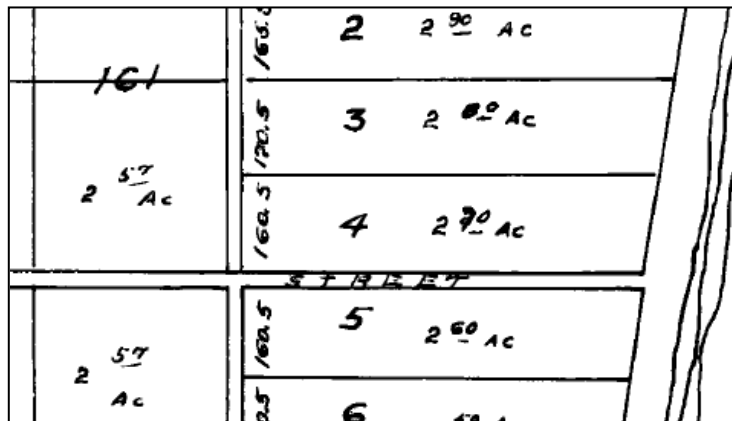 161
2 57 Ac
2 57 Ac
2
2 90 Ac
3
120.5
2 80 Ac
4
160.5
2 70 Ac
STREET
5
160.5
2 60 Ac
6